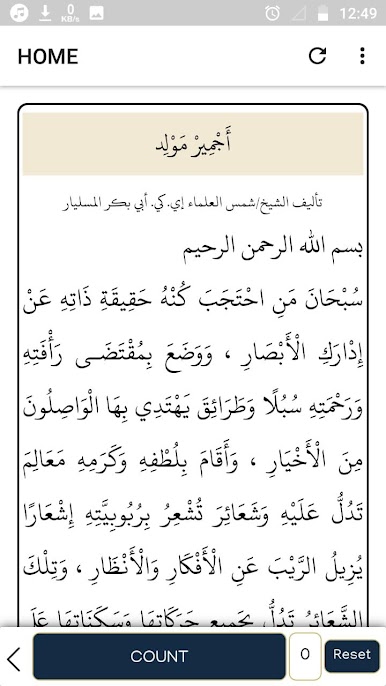 0
KB/s
12:49
HOME
أَجْمِيرْ مَوْلِد
تأليف الشيخ/شمس العلماء إي.كي. أبي بكر المسليار
بسم الله الرحمن الرحيم
سُبْحَانَ مَنِ احْتَجَبَ كُنْهُ حَقِيقَةِ ذَاتِهِ عَنْ
إِدْارَكِ الْأَبْصَارِ ، وَوَضَعَ بِمُقْتَضَـى رَأْفَتِهِ
وَرَحْمَتِهِ سُبُلًا وَطَرَائِقَ يَهْتَدِي بِهَا الْوَاصِلُونَ
مِنَ الْأَخْيَارِ ، وَأَقَامَ بِلُطْفِهِ وَكَرَمِهِ مَعَالِمَ
تَدُلُّ عَلَيْهِ وَشَعَائِرَ تُشْعِرُ بِرُبُوبِيَّتِهِ إِشْعَارًا
يُزِيلُ الرَّيْبَ عَنِ الْأَفْكَارِ وَالْأَنْظَارِ ، وَتِلْكَ
الشَّعَائِرُ تَدُلُّ بِجَمِيعِ حَرَكَاتِهَا وَسَكَنَاتِهَا عَلَى
COUNT
0
Reset